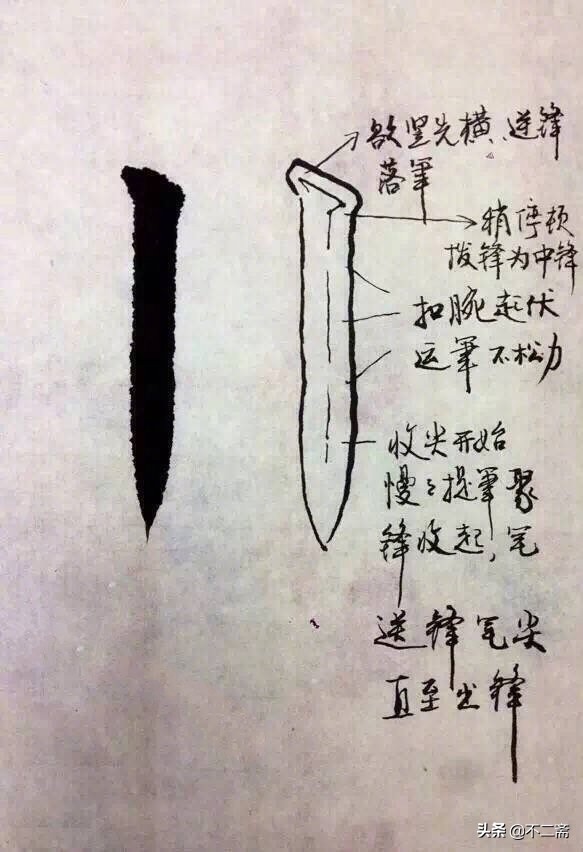 欲竖先横、逆锋
落笔
稍停顿
拨锋为中锋
扣腕起伏
运筆不松力
收尖开始
慢〻提筆聚
锋收起,笔
送锋笔尖
直至出锋
头条 @不二斋